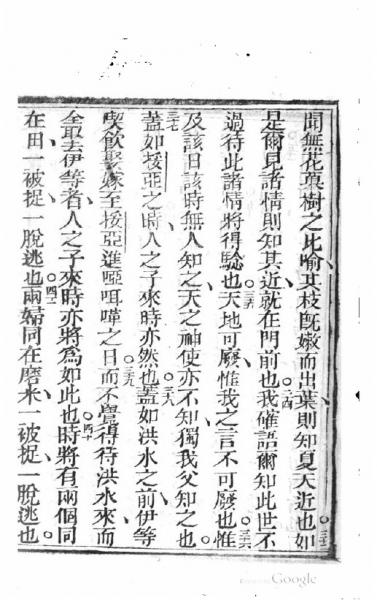 聞無花菓樹之比喻其枝既嫩而出葉則知夏天近也如
是爾見諸情則知其近就在門前也我確語爾知此世不
過待此諸情將得騐也天地可廢惟我之言不可廢也惟
及該日該時無人知之天之神使亦不知獨我父知之也
蓋如挼亞之時人之子來時亦然也蓋如洪水之前伊等
喫飲娶嫁至挼亞進啞咡㘁之日而不覺得待洪水來而
全取去伊等者人之子來時亦將為如此也時將有兩個同
在田一被捉一脫逃也兩婦同在磨米一被捉一脫逃也
Google